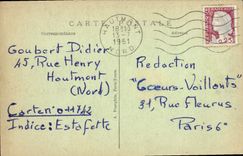 CARTE POSTALE
Correspondance
Adresse
HAUTMONT
NORD
18H
1961
0,25
Goubert Didier
45, Rue Henry
Hautmont
(Nord)
Carten° 11712
Indice: Estafette
Redaction
"Cœurs-Vaillants"
31, Rue Fleurus
Paris 6°